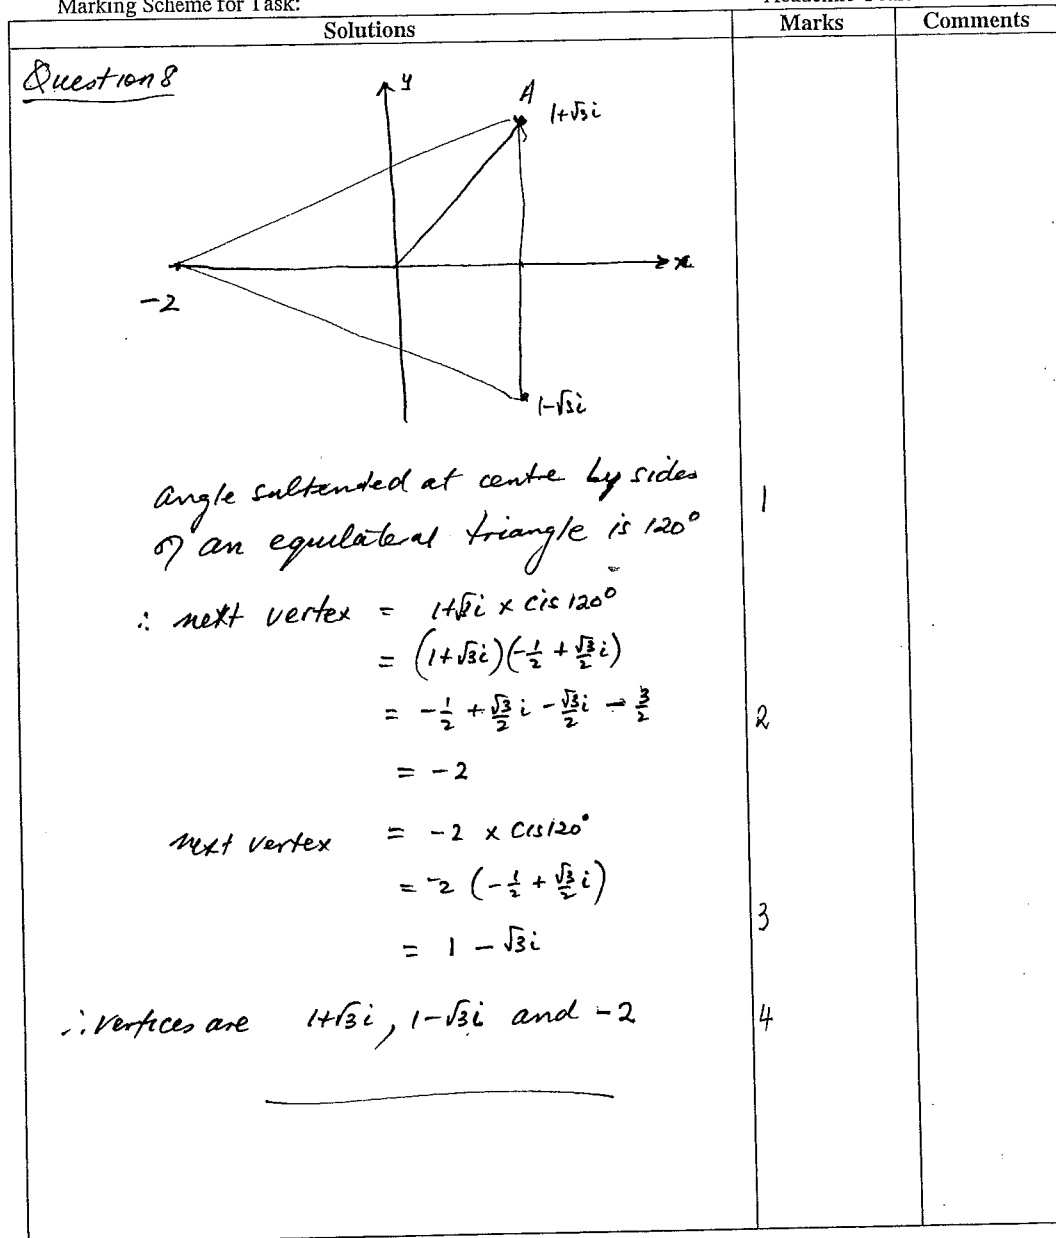 Marking Scheme for Task:
Solutions
Marks
Comments
Question 8
y
A
1+√3i
x
-2
1-√3i
angle subtended at centre by sides
of an equilateral triangle is 120°
1
∴ next vertex = 1+√3i × cis 120°
= (1+√3i)(-1/2 + √3/2 i)
= -1/2 + √3/2 i - √3/2 i - 3/2
2
= -2
next vertex = -2 × cis 120°
= -2 (-1/2 + √3/2 i)
3
= 1 - √3i
∴ vertices are 1+√3i, 1-√3i and -2
4